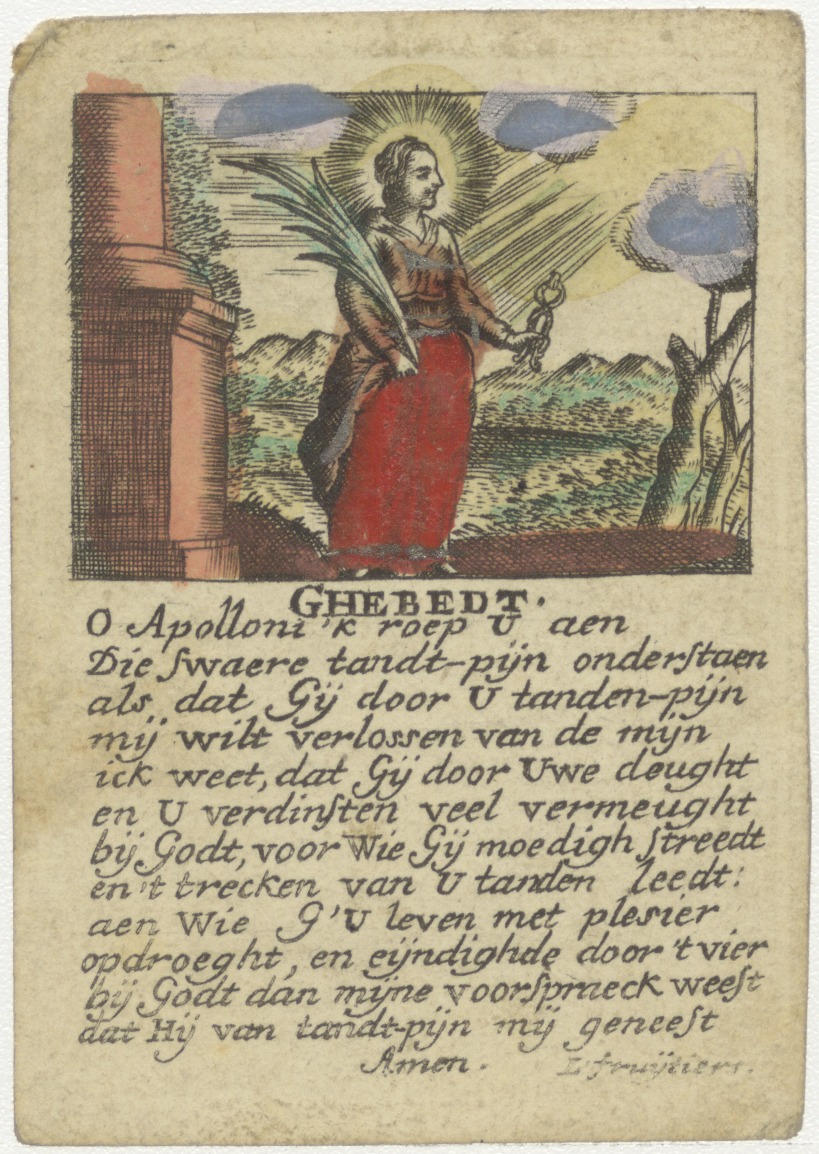 GHEBEDT.
O Apolloni 'k roep U aen
Die swaere tandt-pijn onderstaen
als dat Gij door U tanden-pijn
mij wilt verlossen van de mijn
ick weet, dat Gij door Uwe deught
en U verdinsten veel vermeught
bij Godt, voor Wie Gij moedigh streedt
en 't trecken van U tanden leedt:
aen Wie G'U leven met plesier
opdroeght, en eijndighde door 't vier
bij Godt dan mijne voorspraeck weest
dat Hij van tandt-pijn mij geneest
Amen. L. fruijtiers.